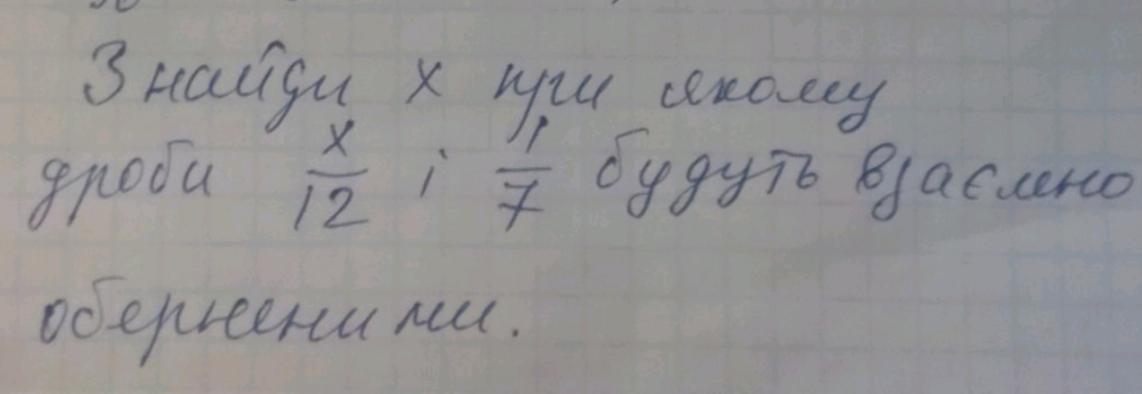 Знайди x при якому
дроби x/12 і 1/7 будуть взаємно
оберненими.